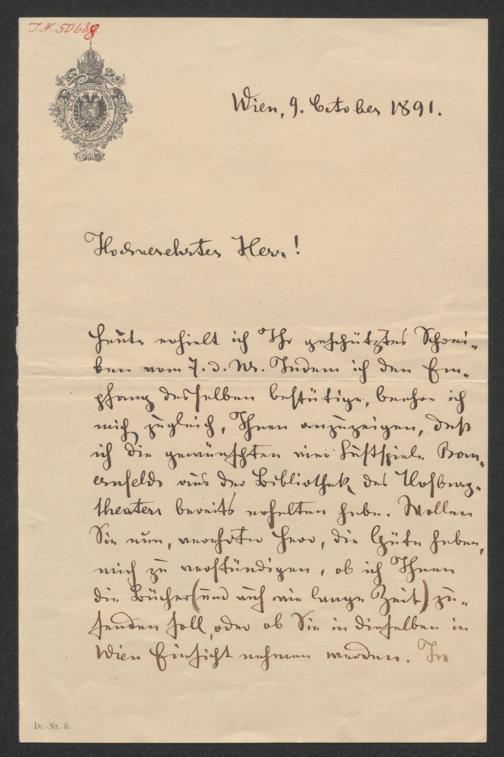 I.N. 50688
Wien, 9. October 1891.
Hochverehrter Herr!
Heute erhielt ich Ihr geschätztes Schrei-
ben vom 7. d. M. Indem ich den Em-
pfang desselben bestätige, beehre ich
mich zugleich, Ihnen anzuzeigen, daß
ich die gewünschten vier Lustspiele Bau-
ernfelds aus der Bibliothek des Hofburg-
theaters bereits erhalten habe. Wollen
Sie nun, verehrter Herr, die Güte haben,
mich zu verständigen, ob ich Ihnen
die Bücher (und auf wie lange Zeit) zu-
senden soll, oder ob Sie in dieselben in
Wien Einsicht nehmen werden. In
Dr.-Nr. 8.